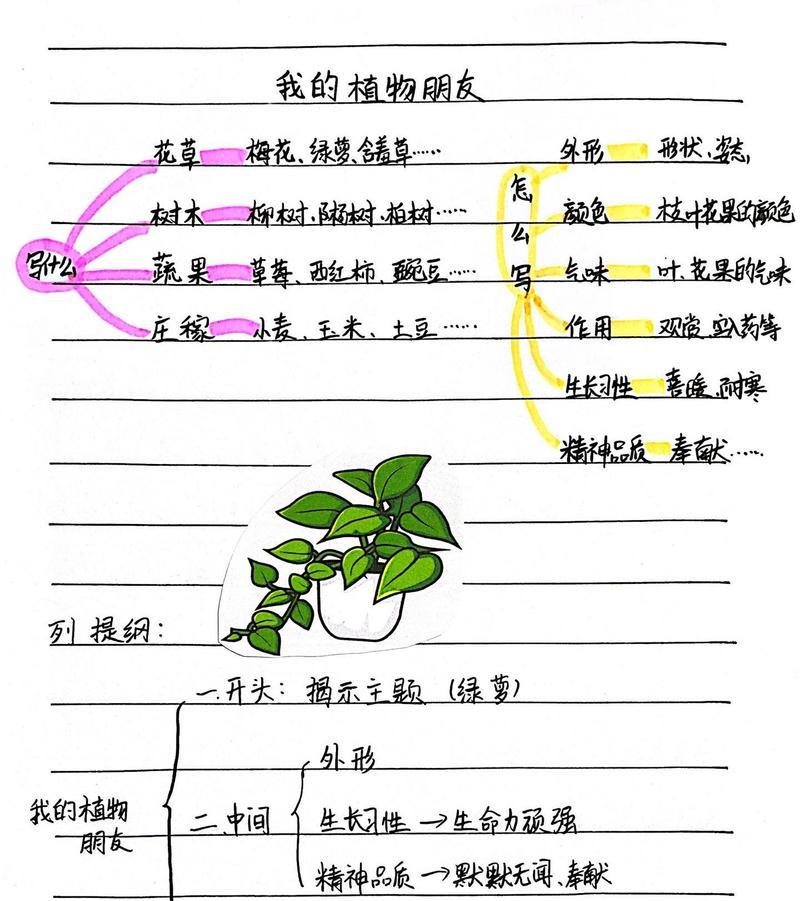 我的植物朋友
写什么
花草 梅花、绿萝、含羞草……
树木 柳树、杨树、柏树……
蔬果 草莓、西红柿、豌豆……
庄稼 小麦、玉米、土豆……
怎么写
外形 形状、姿态,
颜色 枝叶花果的颜色
气味 叶、花果的气味
作用 观赏、入药等
生长习性 喜暖、耐寒
精神品质 奉献……
列提纲:
我的植物朋友
一.开头: 揭示主题 (绿萝)
二.中间
外形
生长习性→生命力顽强
精神品质→默默无闻、奉献